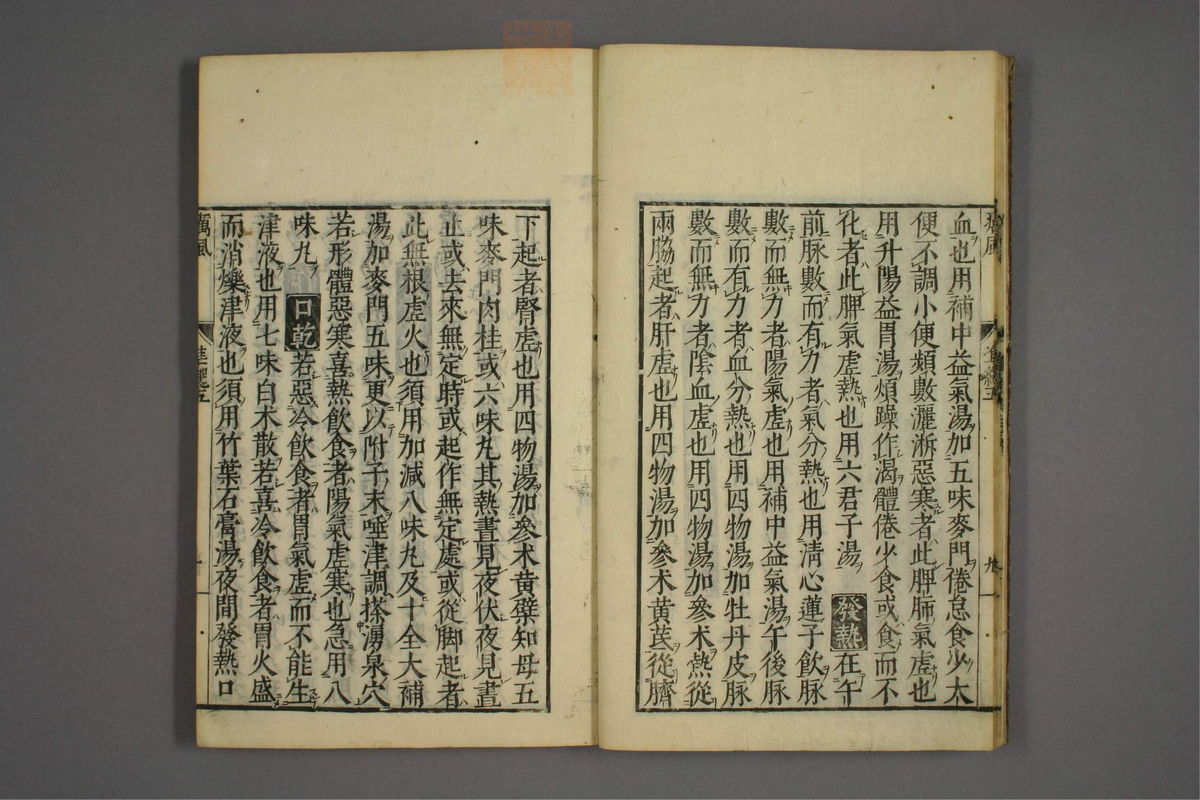 血也用補中益氣湯加五味麥門倦怠食少大
便不調小便頻數灑淅惡寒者此脾肺氣虛也
用升陽益胃湯煩躁作渴體倦少食或食而不
化者此脾氣虛熱也用六君子湯 發熱 在午
前脉數而有力者氣分熱也用清心蓮子飲脉
數而無力者陽氣虛也用補中益氣湯午後脉
數而有力者血分熱也用四物湯加牡丹皮脉
數而無力者陰血虛也用四物湯加參术熱從
兩脇起者肝虛也用四物湯加參术黃茋從臍
下起者腎虛也用四物湯加參术黃蘗知母五
味麥門肉桂或六味丸其熱晝見夜伏夜見晝
止或去來無定時或起作無定處或從脚起者
此無根虛火也須用加減八味丸及十全大補
湯加麥門五味更以附子末唾津調搽湧泉穴
若形體惡寒喜熱飲食者陽氣虛寒也急用八
味丸 口乾 若惡冷飲食者胃氣虛而不能生
津液也用七味白术散若喜冷飲食者胃火盛
而消爍津液也須用竹葉石膏湯夜間發熱口
癘風